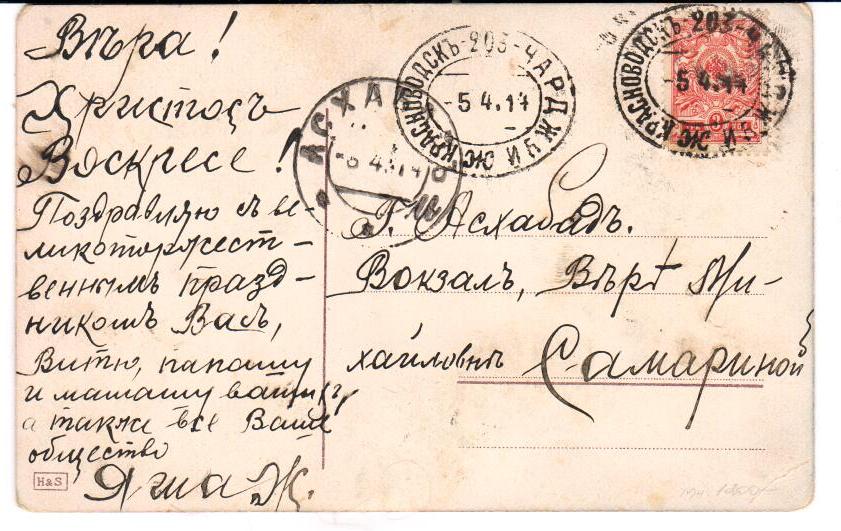 Вѣра!
Христосъ
Воскресе!
Поздравляю съ ве-
ликоторжест-
веннымъ празд-
никомъ Васъ,
Витю, папашу
и мамашу вашихъ,
а также все Ваше
общество
Яша Ж.
H&S
АСХАБ
-6 4.14
КРАСНОВОДСКЪ-203-ЧАРДЖУЙ
-5 4.14
КРАСНОВОДСКЪ-203-ЧАРДЖУЙ
-5 4.14
Г. Асхабадъ.
Вокзалъ, Вѣрѣ Ми-
хайловнѣ Самариной